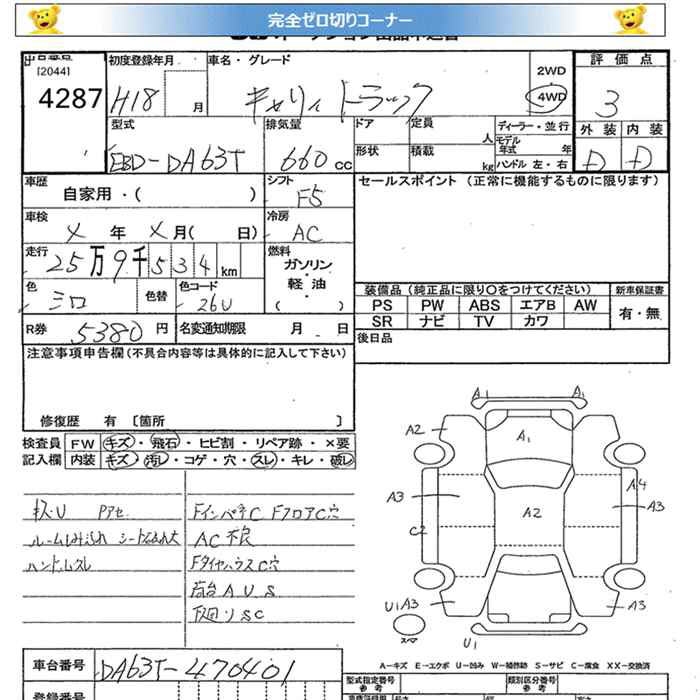 完全ゼロ切りコーナー
[2044]
4287
初度登録年月 H18 月
車名・グレード キャリィ トラック
2WD
4WD
評価点 3
外装 D 内装 D
型式 EBD-DA63T
排気量 660 cc
ドア
定員 人
形状
積載 kg
ディーラー・並行
モデル年式 年
ハンドル 左・右
車歴 自家用・( )
シフト F5
セールスポイント (正常に機能するものに限ります)
車検 メ 年 メ 月( 日)
冷房 AC
走行 25万9千534km
燃料 ガソリン・軽油・( )
色 シロ 色替
色コード 26U
装備品(純正品に限り○をつけてください)
新車保証書
PS PW ABS エアB AW
有・無
SR ナビ TV カワ
R券 5380 円
名変通知期限 月 日
後日品
注意事項申告欄(不具合内容等は具体的に記入して下さい)
修復歴 有 〔箇所 〕
検査員 FW キズ・飛石・ヒビ割・リペア跡・×要
記入欄 内装 キズ・汚レ・コゲ・穴・スレ・キレ・破レ
キズ・U Pアセ
Fインパネ C Fフロア C穴
AC不良
ハンドルスレ
Fタイヤハウス C穴
荷台 A U S
下回り S C
A1 A1
A2 A1
A3 A2 A4 A3
C2
U1 A3 A3
スペア
U1
A-キズ E-エクボ U-凹み W-補修跡 S-サビ C-腐食 XX-交換済
車台番号 DA63T-470401
型式指定番号 参考
類別区分番号 参考
登録番号